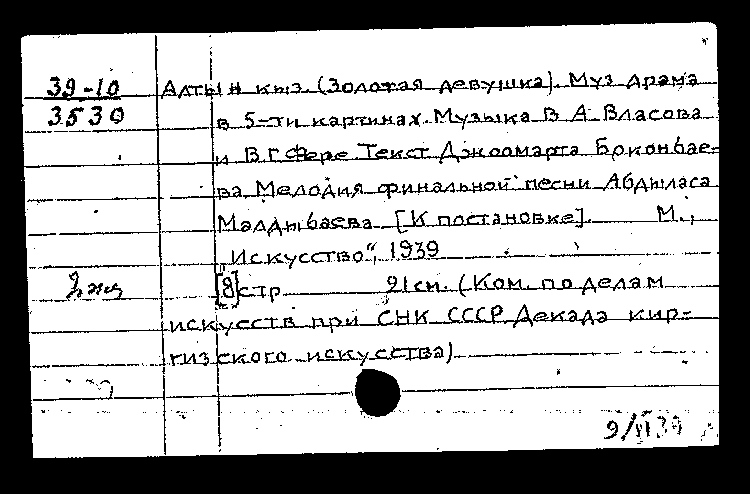 39-10
3530
Алтын кыз. (Золотая девушка). Муз драма
в 5-ти картинах. Музыка В А Власова
и В. Г. Фере. Текст Джоомарта Боконбае-
ва Мелодия финальной песни Абдыласа
Малдыбаева [К постановке]. М.,
„Искусство“, 1939
2 экз
[8] стр 21 см. (Ком. по делам
искусств при СНК СССР Декада кир-
гизского искусства)